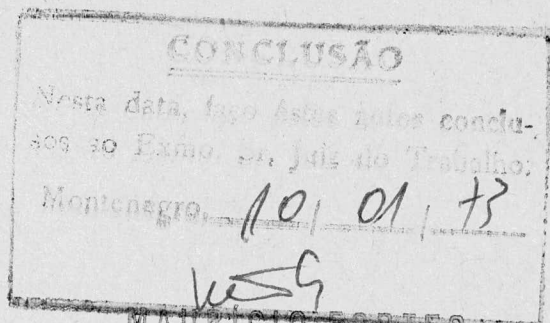 CONCLUSÃO
Nesta data, faço êstes autos conclu-
sos ao Exmo. Sr. Juiz do Trabalho.
Montenegro, 10 / 01 / 73
MAURICIO FORTES